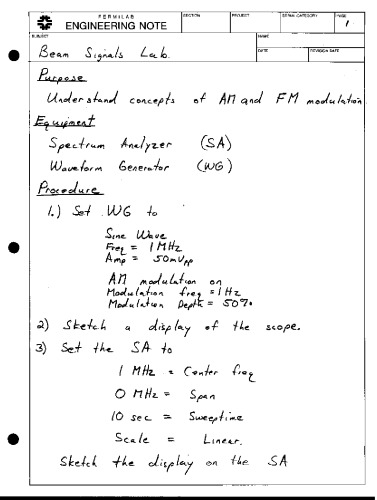 FERMILAB
ENGINEERING NOTE
SECTION
PROJECT
SERIAL-CATEGORY
PAGE
1
SUBJECT
Beam Signals Lab.
NAME
DATE
REVISION DATE
Purpose
Understand concepts of AM and FM modulation
Equipment
Spectrum Analyzer (SA)
Waveform Generator (WG)
Procedure
1.) Set WG to
Sine Wave
Freq = 1 MHz
Amp = 50mVpp
AM modulation on
Modulation freq = 1 Hz
Modulation Depth = 50%
2) Sketch a display of the scope.
3) Set the SA to
1 MHz = Center freq
0 MHz = Span
10 sec = Sweeptime
Scale = Linear.
Sketch the display on the SA